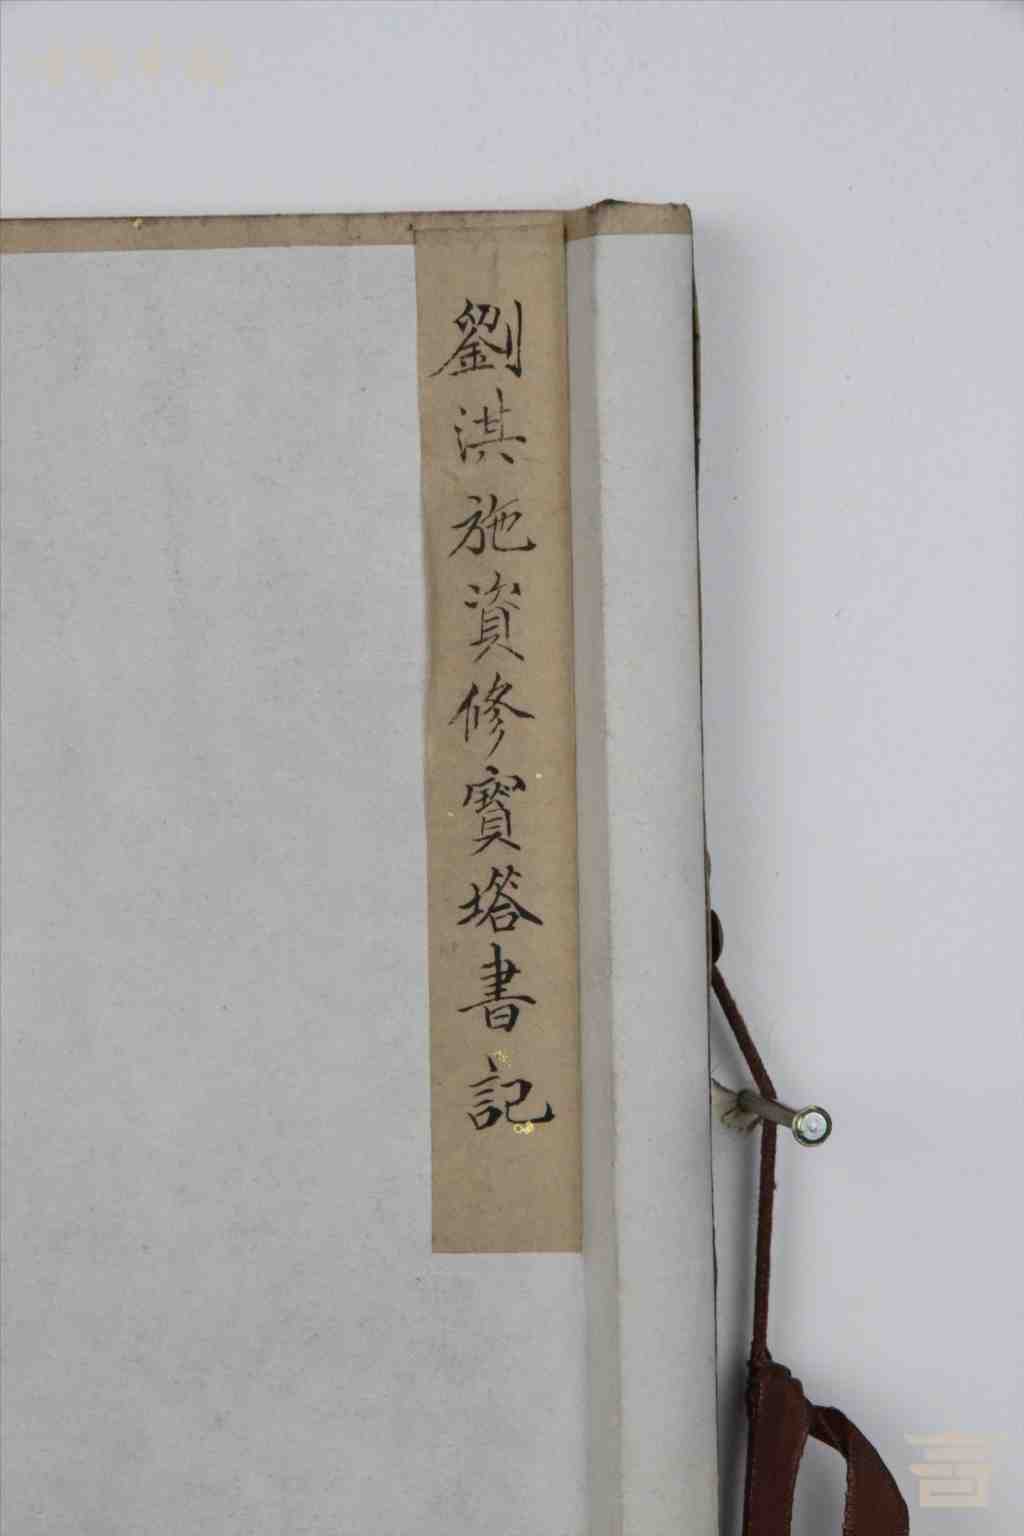 劉淇施資修寳塔書記